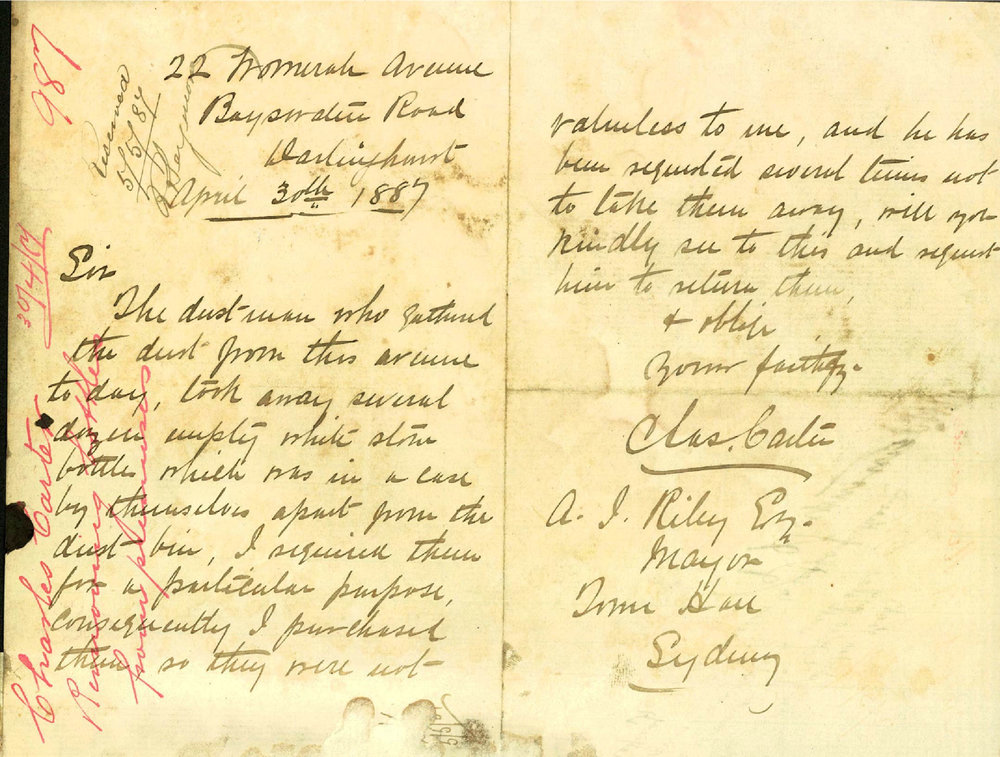 22 Womerah Avenue
Bayswater Road
Darlinghurst
April 30th 1887
Sir
The dust man who gathered
the dust from this avenue
to day, took away several
dozen empty white stone
bottles which was in a case
by themselves apart from the
dust bin, I required them
for a particular purpose,
consequently I purchased
them so they were not
valueless to me, and he has
been requested several times not
to take them away, will you
kindly see to this and request
him to return them,
& oblige
Yours faithfy.
Chas. Carter
A. J. Riley Esq.
Mayor
Town Hall
Sydney
987
received
5/5/87
30/4/87
Charles Carter
Removing bottles
from premises